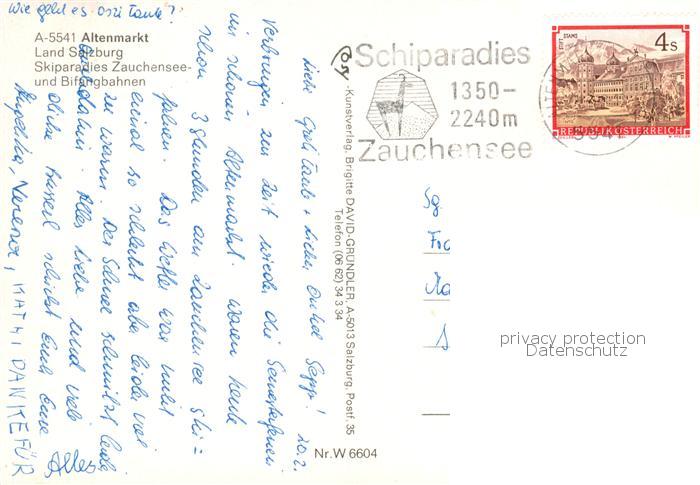 Wie geht es oszi Tante?
A-5541 Altenmarkt
Land Salzburg
Skiparadies Zauchensee-
und Bifangbahnen
Liebe Gretl Tante + lieber Onkel Sepp! 20.2.
Verbringen zur Zeit wieder die Semesterferien
im schönen Altenmarkt. Waren heute
schon 3 Stunden am Zauchensee Ski=
fahren. Das Wetter war nicht
einmal so schlecht aber leider viel
zu warm. Der Schnee schmilzt leider
dahin. Alles Liebe und viele
schickt Euch Eure
Angelika, Verena, KATHI DANKE FÜR
Alles
Cosy -Kunstverlag, Brigitte DAVID-GRÜNDLER, A-5013 Salzburg, Postf. 35
Telefon (06 62) 34 3 34
Nr. W 6604
Schiparadies
1350-
2240m
Zauchensee
STIFT STAMS
4 S
REPUBLIK ÖSTERREICH
5541
Sg.
privacy protection
Datenschutz